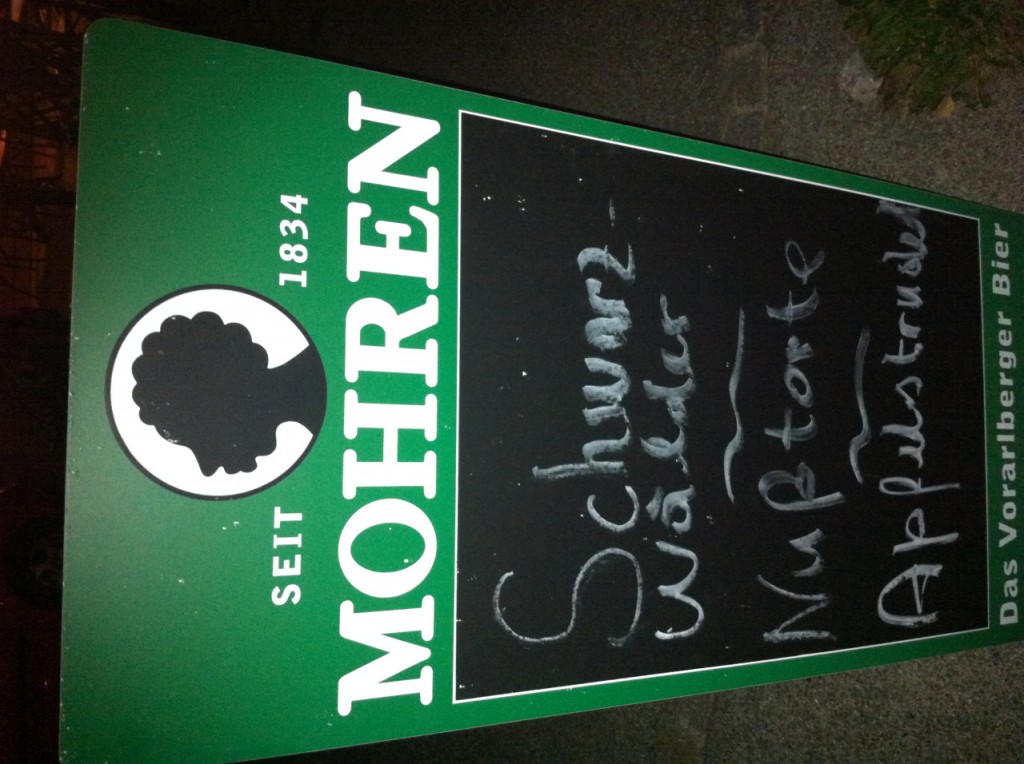 SEIT 1834
MOHREN
Schwarz-
wälder
Nußtorte
Apfelstrudel
Das Vorarlberger Bier